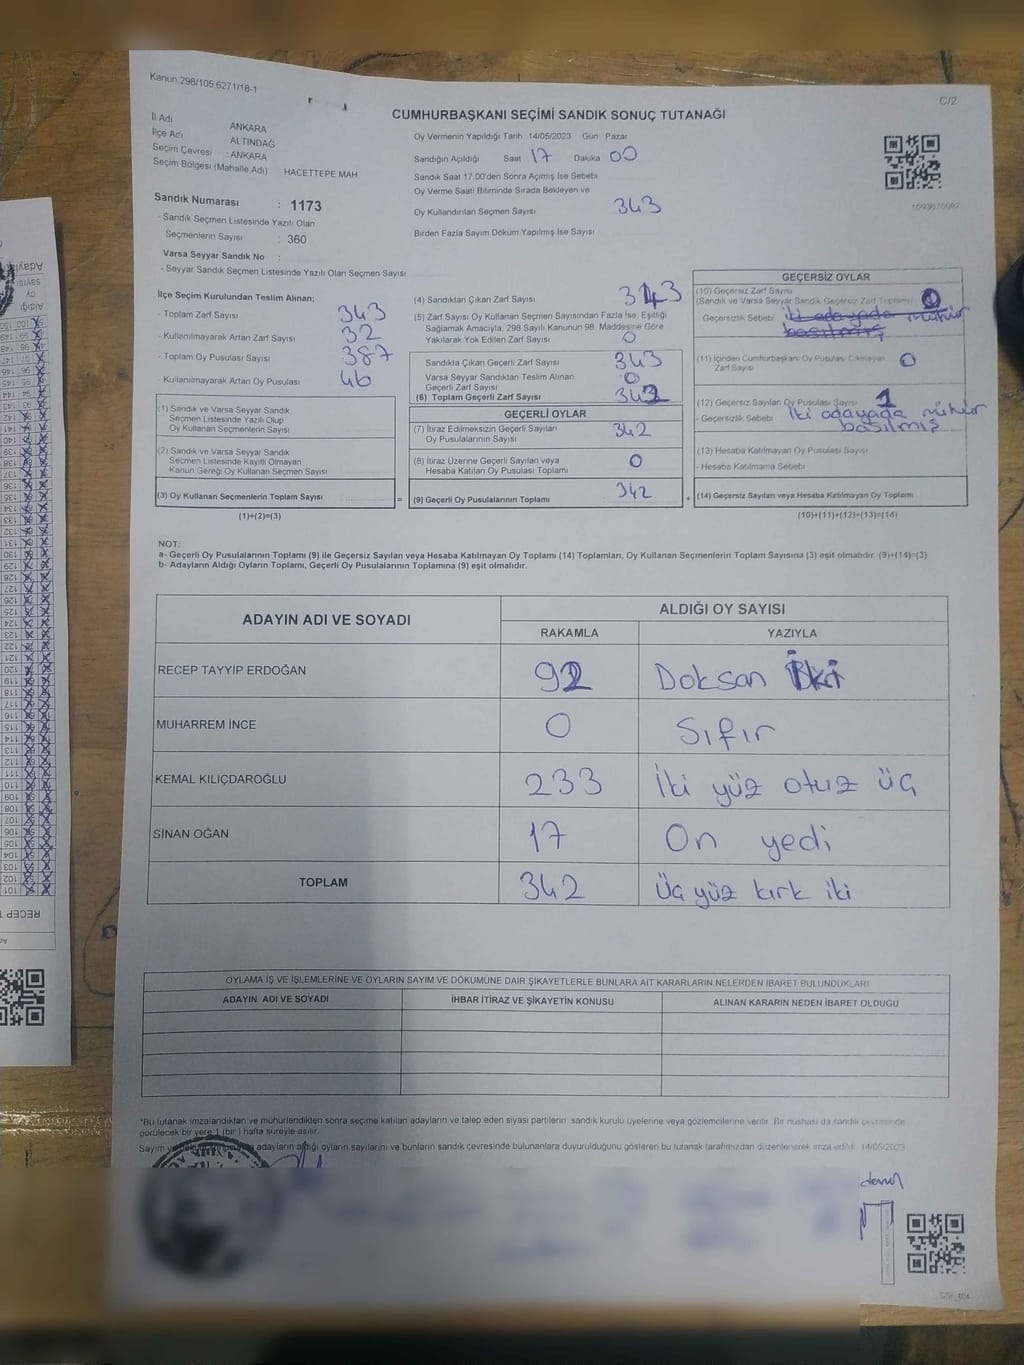 Kanun 298/105,6271/18-1
C/2
CUMHURBAŞKANI SEÇİMİ SANDIK SONUÇ TUTANAĞI
İl Adı ANKARA
İlçe Adı ALTINDAĞ
Seçim Çevresi : ANKARA
Seçim Bölgesi (Mahalle Adı) HACETTEPE MAH
Sandık Numarası : 1173
- Sandık Seçmen Listesinde Yazılı Olan
Seçmenlerin Sayısı : 360
Varsa Seyyar Sandık No :
- Seyyar Sandık Seçmen Listesinde Yazılı Olan Seçmen Sayısı
Oy Vermenin Yapıldığı Tarih 14/05/2023 Gün : Pazar
Sandığın Açıldığı Saat 17 Dakika 00
Sandık Saat 17:00'den Sonra Açımış İse Sebebi
Oy Verme Saati Bitiminde Sırada Bekleyen ve
Oy Kullandırılan Seçmen Sayısı 343
Birden Fazla Sayım Döküm Yapılmış İse Sayısı
İlçe Seçim Kurulundan Teslim Alınan;
- Toplam Zarf Sayısı 343
- Kullanılmayarak Artan Zarf Sayısı 32
- Toplam Oy Pusulası Sayısı 387
- Kullanılmayarak Artan Oy Pusulası 46
(1) Sandık ve Varsa Seyyar Sandık
Seçmen Listesinde Yazılı Olup
Oy Kullanan Seçmenlerin Sayısı
(2) Sandık ve Varsa Seyyar Sandık
Seçmen Listesinde Kayıtlı Olmayan
Kanun Gereği Oy Kullanan Seçmen Sayısı
(3) Oy Kullanan Seçmenlerin Toplam Sayısı =
(1)+(2)=(3)
(4) Sandıktan Çıkan Zarf Sayısı 343
(5) Zarf Sayısı Oy Kullanan Seçmen Sayısından Fazla İse, Eşitliği
Sağlamak Amacıyla, 298 Sayılı Kanunun 98. Maddesine Göre
Yakılarak Yok Edilen Zarf Sayısı 0
Sandıkta Çıkan Geçerli Zarf Sayısı 343
Varsa Seyyar Sandıktan Teslim Alınan
Geçerli Zarf Sayısı 0
(6) Toplam Geçerli Zarf Sayısı 342
GEÇERLİ OYLAR
(7) İtiraz Edilmeksizin Geçerli Sayılan
Oy Pusulalarının Sayısı 342
(8) İtiraz Üzerine Geçerli Sayılan veya
Hesaba Katılan Oy Pusulası Toplamı 0
(9) Geçerli Oy Pusulalarının Toplamı 342 +
GEÇERSİZ OYLAR
(10) Geçersiz Zarf Sayısı
(Sandık ve Varsa Seyyar Sandık Geçersiz Zarf Toplamı) 0
Geçersizlik Sebebi iki adayada mühür
basılmış
(11) İçinden Cumhurbaşkanı Oy Pusulası Çıkmayan
Zarf Sayısı 0
(12) Geçersiz Sayılan Oy Pusulası Sayısı 1
- Geçersizlik Sebebi iki adayada mühür
basılmış
(13) Hesaba Katılmayan Oy Pusulası Sayısı
- Hesaba Katılmama Sebebi
(14) Geçersiz Sayılan veya Hesaba Katılmayan Oy Toplamı
(10)+(11)+(12)+(13)=(14)
NOT:
a- Geçerli Oy Pusulalarının Toplamı (9) ile Geçersiz Sayılan veya Hesaba Katılmayan Oy Toplamı (14) Toplamları, Oy Kullanan Seçmenlerin Toplam Sayısına (3) eşit olmalıdır. (9)+(14)=(3)
b- Adayların Aldığı Oyların Toplamı, Geçerli Oy Pusulalarının Toplamına (9) eşit olmalıdır.
ADAYIN ADI VE SOYADI ALDIĞI OY SAYISI
RAKAMLA YAZIYLA
RECEP TAYYİP ERDOĞAN 92 Doksan İki
MUHARREM İNCE 0 Sıfır
KEMAL KILIÇDAROĞLU 233 İki yüz otuz üç
SİNAN OĞAN 17 On yedi
TOPLAM 342 Üç yüz kırk iki
OYLAMA İŞ VE İŞLEMLERİNE VE OYLARIN SAYIM VE DÖKÜMÜNE DAİR ŞİKAYETLERLE BUNLARA AİT KARARLARIN NELERDEN İBARET BULUNDUKLARI
ADAYIN ADI VE SOYADI İHBAR İTİRAZ VE ŞİKAYETİN KONUSU ALINAN KARARIN NEDEN İBARET OLDUĞU
*Bu tutanak imzalandıktan ve mühürlendikten sonra seçime katılan adayların ve talep eden siyasi partilerin sandık kurulu üyelerine veya gözlemcilerine verilir. Bir nüshası da sandık çevresinde
görülecek bir yere 1 (bir) hafta süreyle asılır.
Sayım adayların aldığı oyların sayılarını ve bunların sandık çevresinde bulunanlara duyurulduğunu gösteren bu tutanak tarafımızdan düzenlenerek imza edildi. 14/05/2023